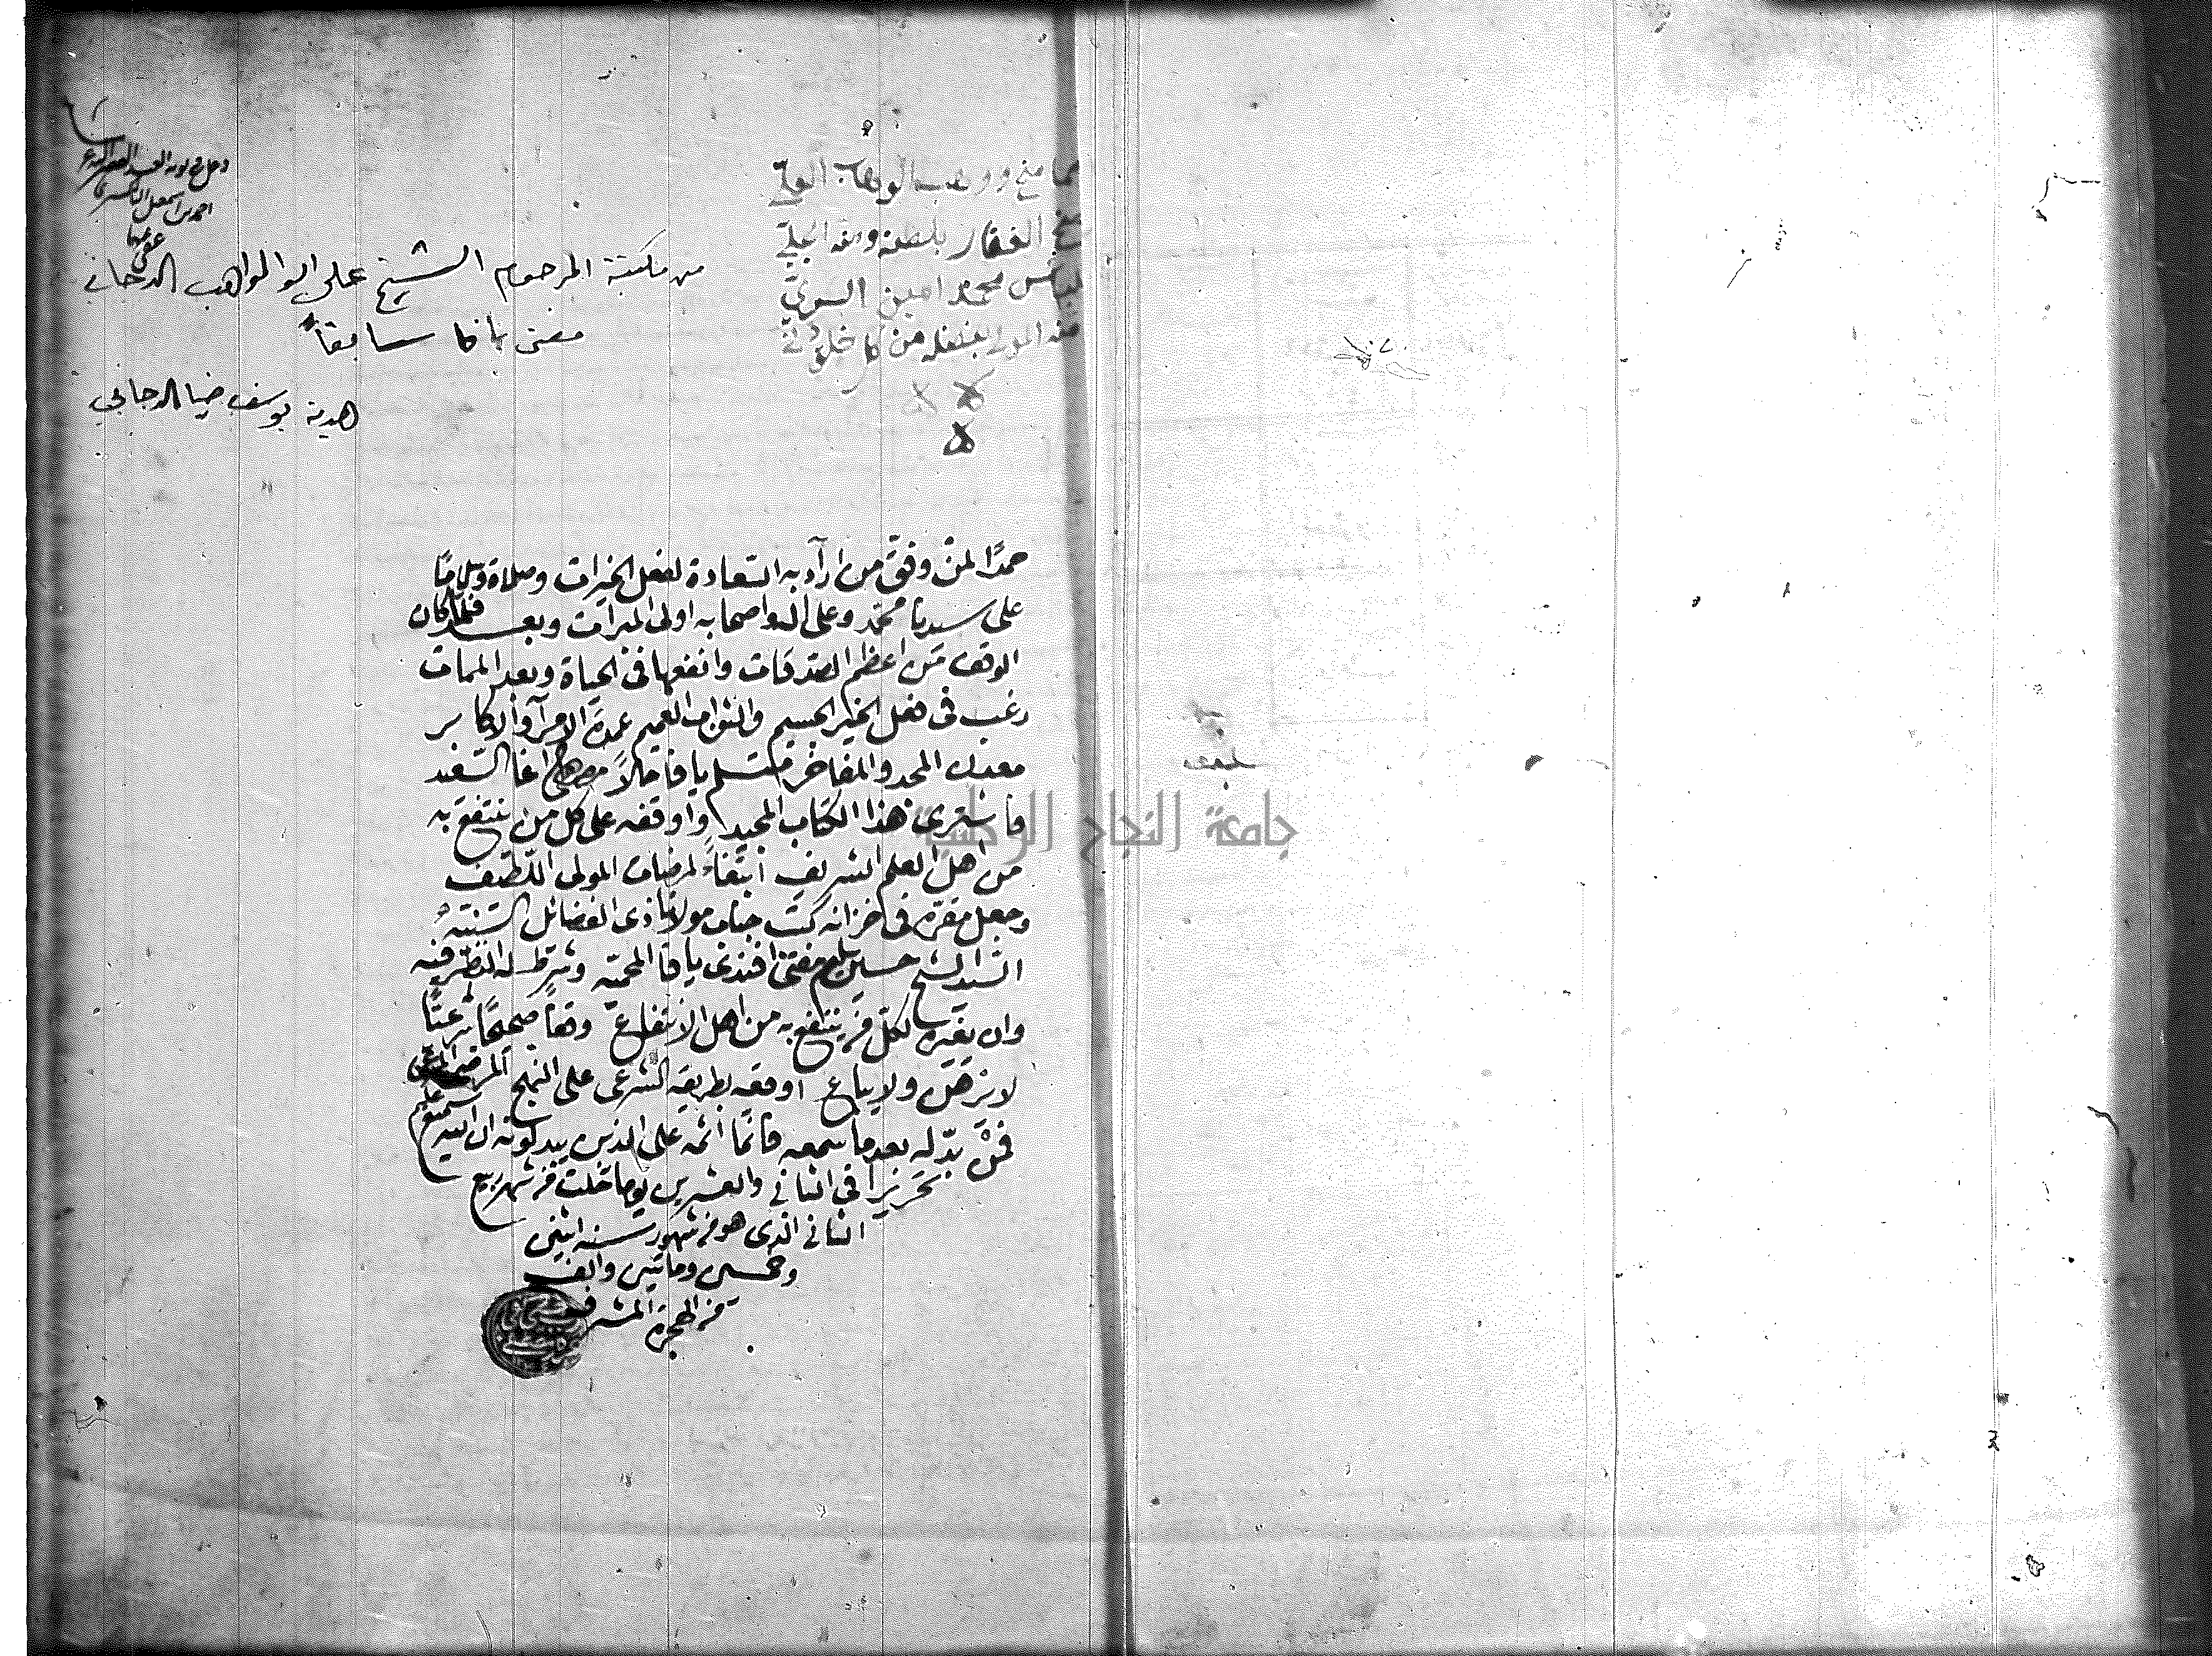 مما منح ووهب الوهاب العلي
الغفار بلطفه ومنه الجلي
محمد امين السري
المولى بفضله من كل خلق
من مكتبة المرحوم الشيخ علي ابو المواهب الدجاني
مفتي يافا سابقاً
هدية يوسف ضيا الدجاني
احمد بن اسمعيل
عفي عنهما
حمدًا لمن وفق من اراد به السعادة لفعل الخيرات وصلاة وسلامًا
على سيدنا محمد وعلى اله واصحابه اولى المبرات وبعد فلما كان
الوقف من اعظم الصدقات وانفعها في الحياة وبعد الممات
رغب في فعل الخير الجسيم والثواب العميم عمدة الامرآء والاكابر
معدن المجد والمفاخر متسلم يافا حالاً مصطفى اغا السعيد
فاشترى هذا الكتاب المجيد واوقفه على كل من ينتفع به
من اهل العلم الشريف ابتغاءً لمرضات المولى اللطيف
وجعل مقره في خزانة كتب جناب مولانا ذى الفضائل السنيه
السيد الشيخ حسين سليم مفتى افندى يافا المحميه وشرط له النظر فيه
وان يعيره لكل من ينتفع به من اهل الانتفاع وقفًا صحيحًا شرعيًا
لا يرهن ولا يباع اوقفه بطريقه الشرعى على النهج المرضى المرعى
فمن بدله بعد ما سمعه فانما اثمه على الذين يبدلونه ان الله سميع عليم
تحريرًا في الثاني والعشرين يومًا خلت من شهر ربيع
الثاني الذى هو من شهور سنه اثنين
وخمسين ومائتين والف
من الهجرة المشرفه
جامعة النجاح الوطنية